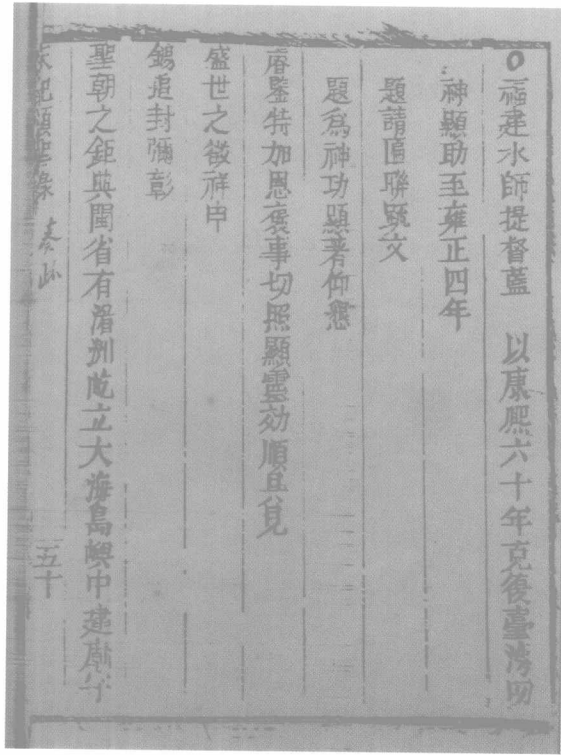 ○福建水師提督藍 以康熙六十年克復臺灣叨
神顯助至雍正四年
題請匾聯文
題為神功顯著仰懇
睿鑒特加恩褒事切照顯靈効順具見
盛世之徵祥申
錫追封彌彰
聖朝之鉅典閩省有湄洲屹立大海島嶼中建廟宇
天妃顯聖錄 奏疏 五十